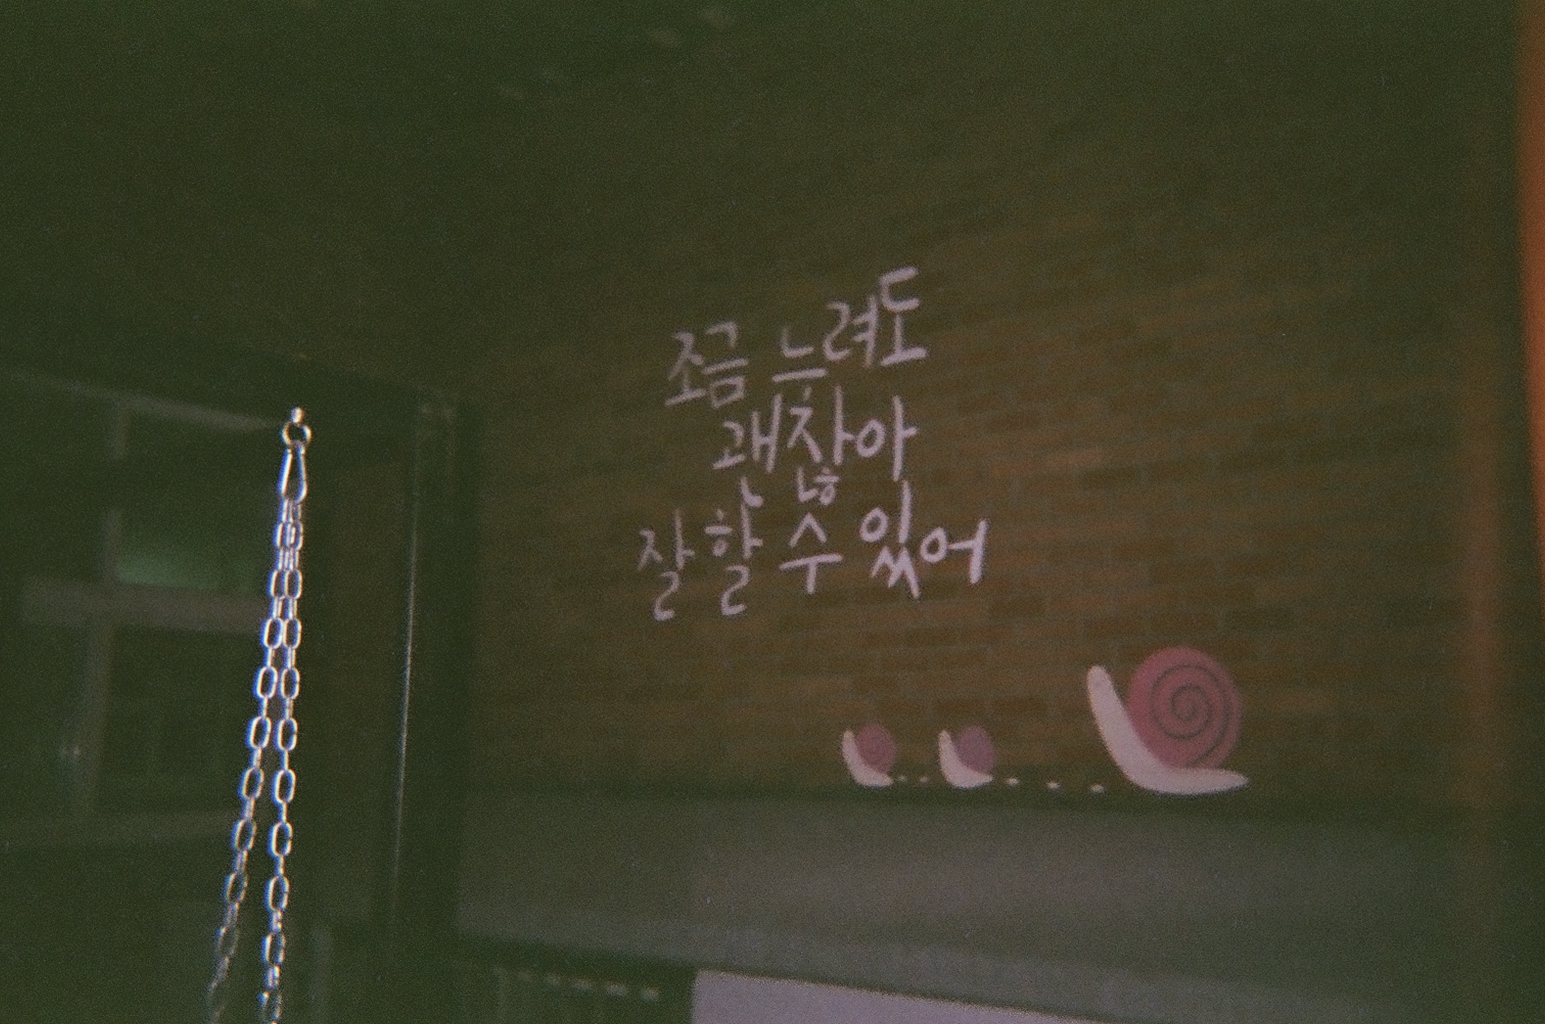 조금 느려도
괜찮아
잘 할 수 있어